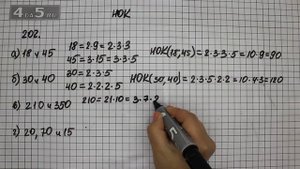 4 до 5.fm
НОК
202.
а) 18 и 45 18 = 2·9 = 2·3·3
45 = 3·15 = 3·3·5 НОК(18,45) = 2·3·3·5 = 10·9 = 90
б) 30 и 40 30 = 2·3·5 НОК(30,40) = 2·3·5·2·2 = 10·4·3 = 120
40 = 2·2·2·5
в) 210 и 350 210 = 21·10 = 3·7·2
г) 20, 70 и 15